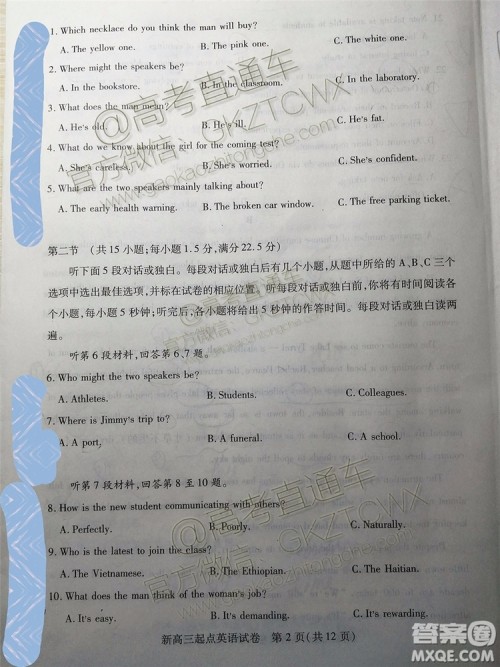 1. Which necklace do you think the man will buy?
A. The yellow one. B. The pink one. C. The white one.
2. Where might the speakers be?
A. In the bookstore. B. In the classroom. C. In the laboratory.
3. What does the man mean?
A. He's old. B. He's ill. C. He's fat.
4. What do we know about the girl for the coming test?
A. She's careless. B. She's worried. C. She's confident.
5. What are the two speakers mainly talking about?
A. The early health warning. B. The broken car window. C. The free parking ticket.
第二节 (共15小题;每小题1.5分,满分22.5分)
听下面5段对话或独白。每段对话或独白后有几个小题,从题中所给的A、B、C三个
选项中选出最佳选项,并标在试卷的相应位置。听每段对话或独白前,你将有时间阅读各
个小题,每小题5秒钟;听完后,各小题将给出5秒钟的作答时间。每段对话或独白读两
遍。
听第6段材料,回答第6、7题。
6. Who might the two speakers be?
A. Athletes. B. Students. C. Colleagues.
7. Where is Jimmy's trip to?
A. A port. B. A funeral. C. A school.
听第7段材料,回答第8至10题。
8. How is the new student communicating with others?
A. Perfectly. B. Poorly. C. Naturally.
9. Who is the latest to join the class?
A. The Vietnamese. B. The Ethiopian. C. The Haitian.
10. What does the man think of the woman's job?
A. It's easy. B. It's tiring. C. It's boring.
新高三起点英语试卷 第2页(共12页)
@高考直通车
官方微信:GKZTCWX
@高考直通车
官方微信:GKZTCWX
答案圈
MXQE.COM